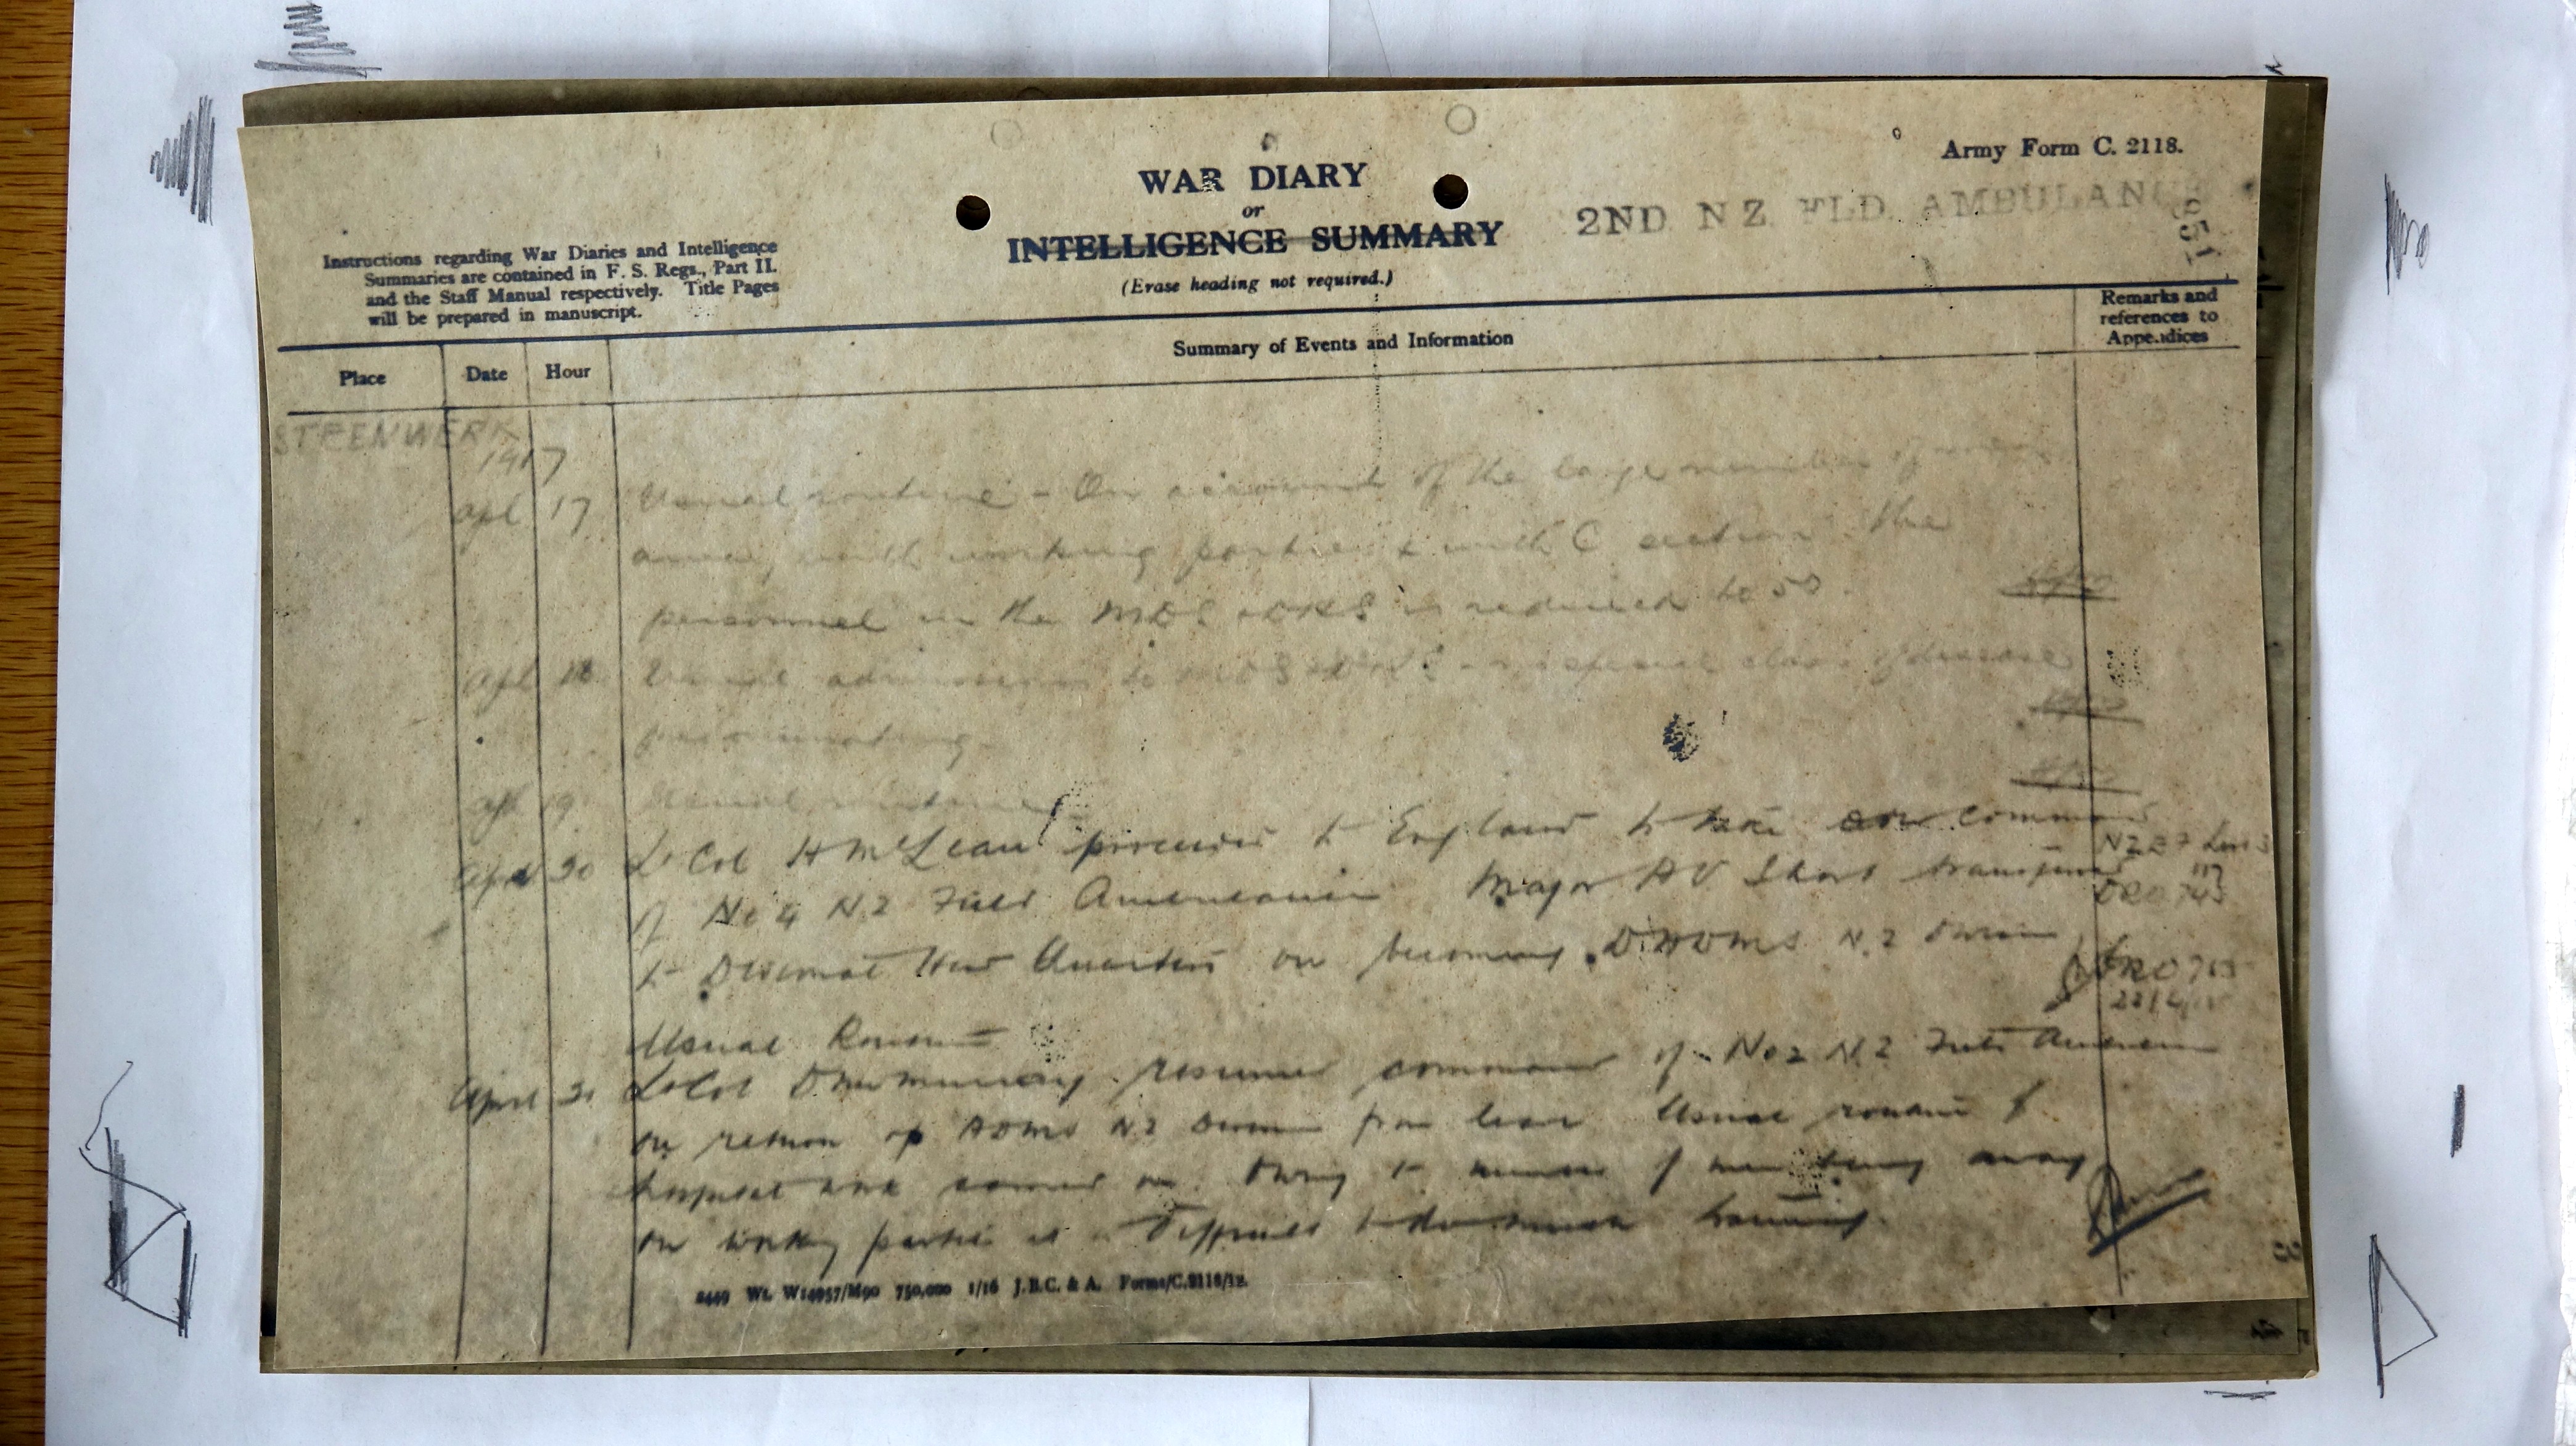 Army Form C. 2118.
WAR DIARY
or
INTELLIGENCE SUMMARY
(Erase heading not required.)
2ND NZ FLD AMBULANCE
Instructions regarding War Diaries and Intelligence
Summaries are contained in F. S. Regs., Part II.
and the Staff Manual respectively. Title Pages
will be prepared in manuscript.
Place
Date
Hour
Summary of Events and Information
Remarks and
references to
Appendices
STEENWERK
1917
Apl 17 Usual routine - On account of the large number of men
away with working parties & with C section the
personnel in the MDS & DRS is reduced to 50.
Apl 18 Usual admissions to MDS & DRS - no special class of disease
predominating.
Apl 19 Usual routine
April 20 Lt Col H McLean proceeded to England to take over command
of No 4 NZ Field Ambulance Major AV Short transferred
to Divisional Head Quarters on becoming DADMS NZ Division
DRO 745
Usual Routine
April 21 Lt Col resumed command of No 2 NZ Field Ambulance
on return of ADMS NZ Division from leave Usual routine of
hospital work carried on. Owing to number of men being away
on working parties it is difficult to do much training.
Wt. W14957/M90 750,000 1/16 J.B.C. & A. Forms/C.2118/12.